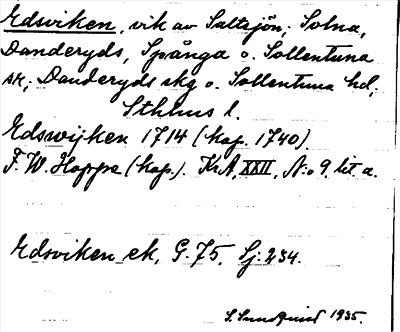 Edsviken, vik av Saltsjön; Solna,
Danderyds, Spånga o. Sollentuna
sk; Danderyds skg o. Sollentuna hd;
Sthlms l.
Edswijken 1714 (kop. 1740).
F. W. Hoppe (kop.). KrA, XXII, N:o 9, lit. a.
Edsviken ek, G. 75, Sj: 234.
S. Sundquist 1935.